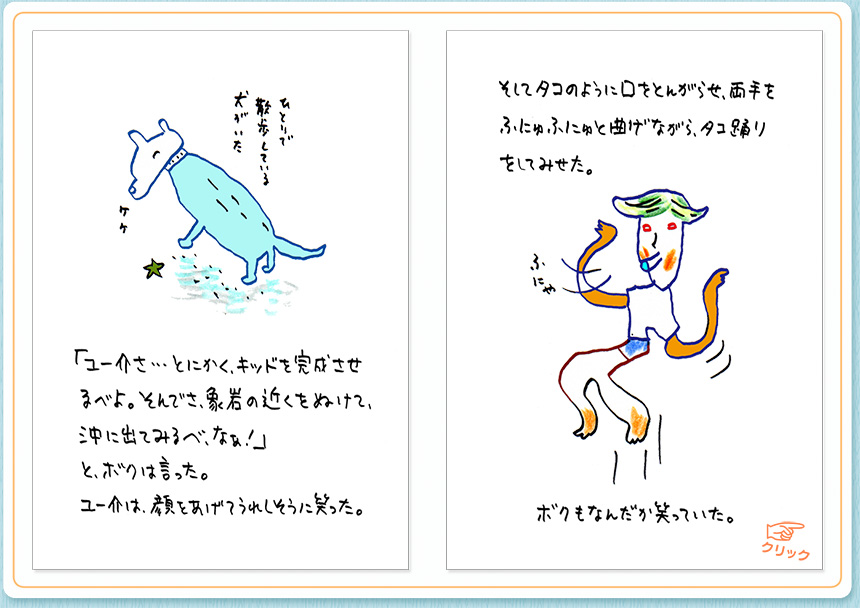 ひとりで
散歩している
犬がいた
ケケ
「ユー介さ…とにかく、キッドを完成させ
るべよ。そんでさ、象岩の近くをぬけて、
沖に出てみるべ、なぁ!」
と、ボクは言った。
ユー介は、顔をあげてうれしそうに笑った。
そしてタコのように口をとんがらせ、両手を
ふにゅふにゅと曲げながら、タコ踊り
をしてみせた。
ふ
にゃ
ボクもなんだか笑っていた。
クリック